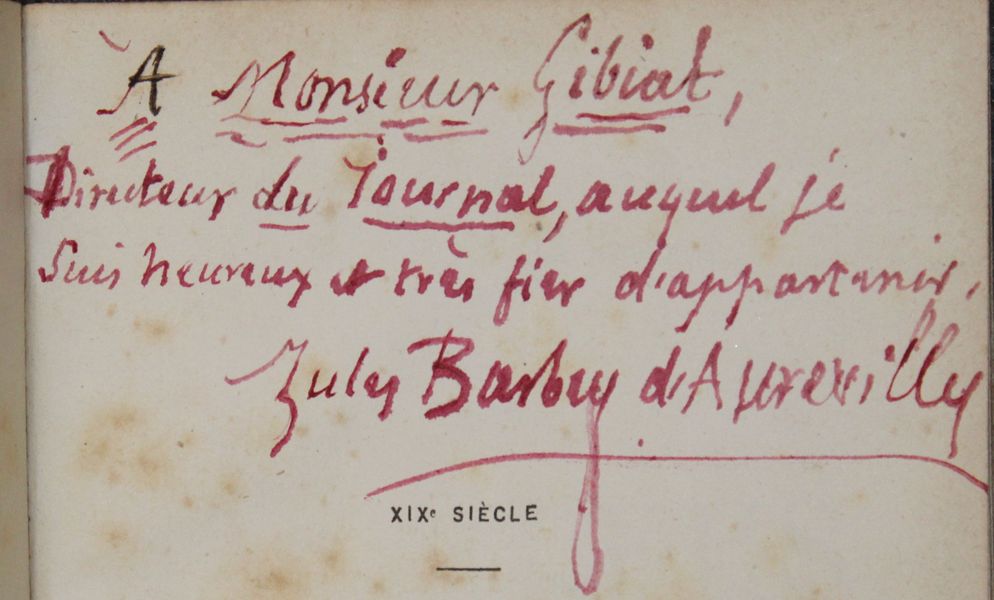 À Monsieur Gibiat,
Directeur du Journal, auquel je
suis heureux et très fier d'appartenir.
Jules Barbey d'Aurevilly
XIXe SIÈCLE